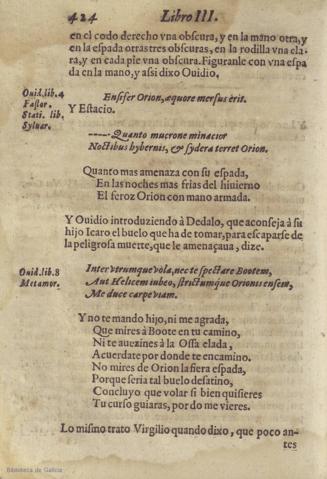 424 Libro III.
en el codo derecho vna obscura, y en la mano otra, y
en la espada otras tres obscuras, en la rodilla vna cla-
ra, y en cada pie vna obscura. Figuranle con vna espa
da en la mano, y assi dixo Ouidio,
Ouid. lib. 4
Fastor.
Stati. lib.
Syluar.
Ensifer Orion, æquore mersus erit.
Y Estacio.
----- Quanto mucrone minacior
Noctibus hybernis, & sydera terret Orion.
Quanto mas amenaza con su espada,
En las noches mas frias del hiuierno
El feroz Orion con mano armada.
Y Ouidio introduziendo à Dedalo, que aconseja à su
hijo Icaro el buelo que ha de tomar, para escaparse de
la peligrosa muerte, que le amenaçaua, dize.
Ouid. lib. 8
Metamor.
Inter vtrumque vola, nec te spectare Bootem,
Aut Helicem iubeo, strictumque Orionis ensem,
Me duce carpe viam.
Y no te mando hijo, ni me agrada,
Que mires à Boote en tu camino,
Ni te auezines à la Ossa elada,
Acuerdate por donde te encamino.
No mires de Orion la fiera espada,
Porque seria tal buelo desatino,
Concluyo que volar si bien quisieres
Tu curso guiaras, por do me vieres.
Lo mismo trato Virgilio quando dixo, que poco an-
tes
Biblioteca de Galicia